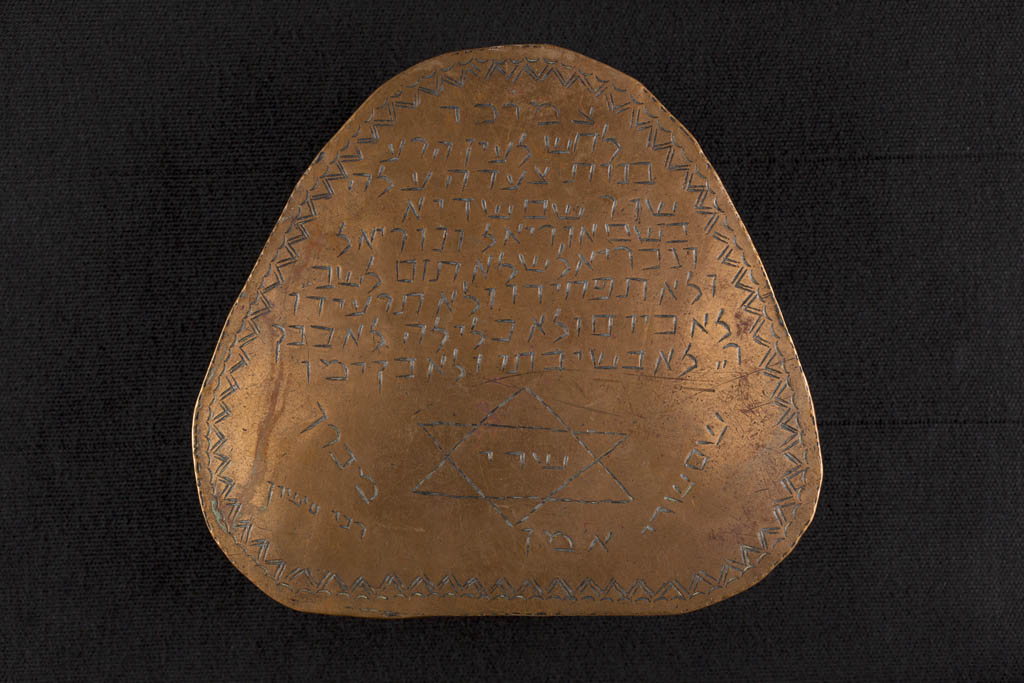 צמרכד
לחש לעין הרע
בנות צעדה עלה
שדי שם שדי א
בשם אוריאל ונוריאל
וגבריאל שלא תום לשב
ולא תפחידו ולא תרעידו
לא ביום ולא בלילה לא בבק
לא בשיבתו ולא בקימן
שדי
אמן